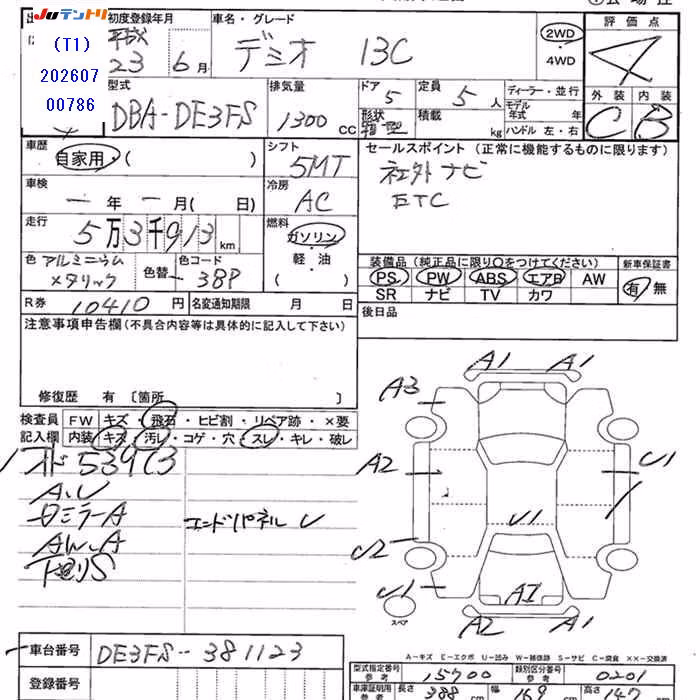 Juテントリ 初度登録年月 車名・グレード
(T1) 平成
202607 23 6月 デミオ 13C
00786
2WD
・
4WD
評価点
4
外装 内装
C B
型式 排気量 ドア 定員 ディーラー・並行
DBA-DE3FS 1300 CC 5 5人
形状 積載 kg
モデル年式 年
ハンドル 左・右
車歴 自家用・( )
シフト 5MT
セールスポイント (正常に機能するものに限ります)
社外ナビ
ETC
車検 ー年ー月( 日)
冷房 AC
走行 5万3千913km
燃料 ガソリン・軽・油
( )
色 アルミニウム
メタリック
色替 ー
色コード 38P
装備品 (純正品に限り○をつけてください) 新車保証書
PS PW ABS エアB AW
SR ナビ TV カワ
有・無
R券 10410円 名変通知期限 月 日
後日品
注意事項申告欄 (不具合内容等は具体的に記入して下さい)
修復歴 有 〔箇所 〕
検査員 FW キズ・飛石・ヒビ割・リペア跡・×要
記入欄 内装 キズ・汚レ・コゲ・穴・スレ・キレ・破レ
53973
A、U
ロミラーA エンドパネル U
AW、A
下回りS
A1 A1
A3
A2 U1
U1
U2
U1
A1
A2 A1
スペア
A-キズ E-エクボ U-凹み W-補修跡 S-サビ C-腐食 XX-交換済
車台番号 DE3FS-381123
登録番号
型式指定番号 参考 15700 類別区分番号 参考 0201
車庫証明用 参考 長さ 388 幅 169 高さ